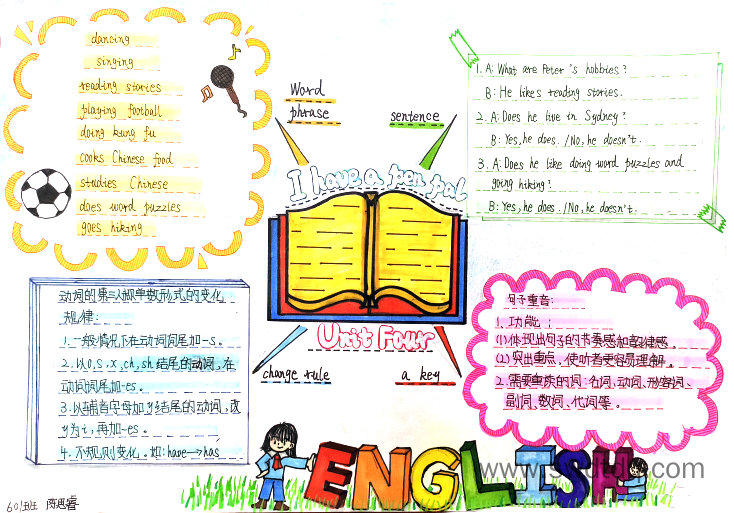 dancing
singing
reading stories
playing football
doing kung fu
cooks Chinese food
studies Chinese
does word puzzles
goes hiking
Word
phrase
sentence
I have a pen pal
Unit Four
change rule
a key
1. A: What are Peter's hobbies?
B: He likes reading stories.
2. A: Does he live in Sydney?
B: Yes, he does. /No, he doesn't.
3. A: Does he like doing word puzzles and
going hiking?
B: Yes, he does. /No, he doesn't.
动词的第三人称单数形式的变化
规律:
1. 一般情况下在动词词尾加-s。
2. 以o, s, x, ch, sh结尾的动词,在
动词词尾加-es。
3. 以辅音字母加y结尾的动词,改
y为i,再加-es。
4. 不规则变化。如: have→has
句子重音:
1. 功能:
(1) 体现出句子的节奏感和韵律感。
(2) 突出重点,使听者更容易理解。
2. 需要重读的词:名词、动词、形容词、
副词、数词、代词等。
ENGLISH
601班 陈思睿